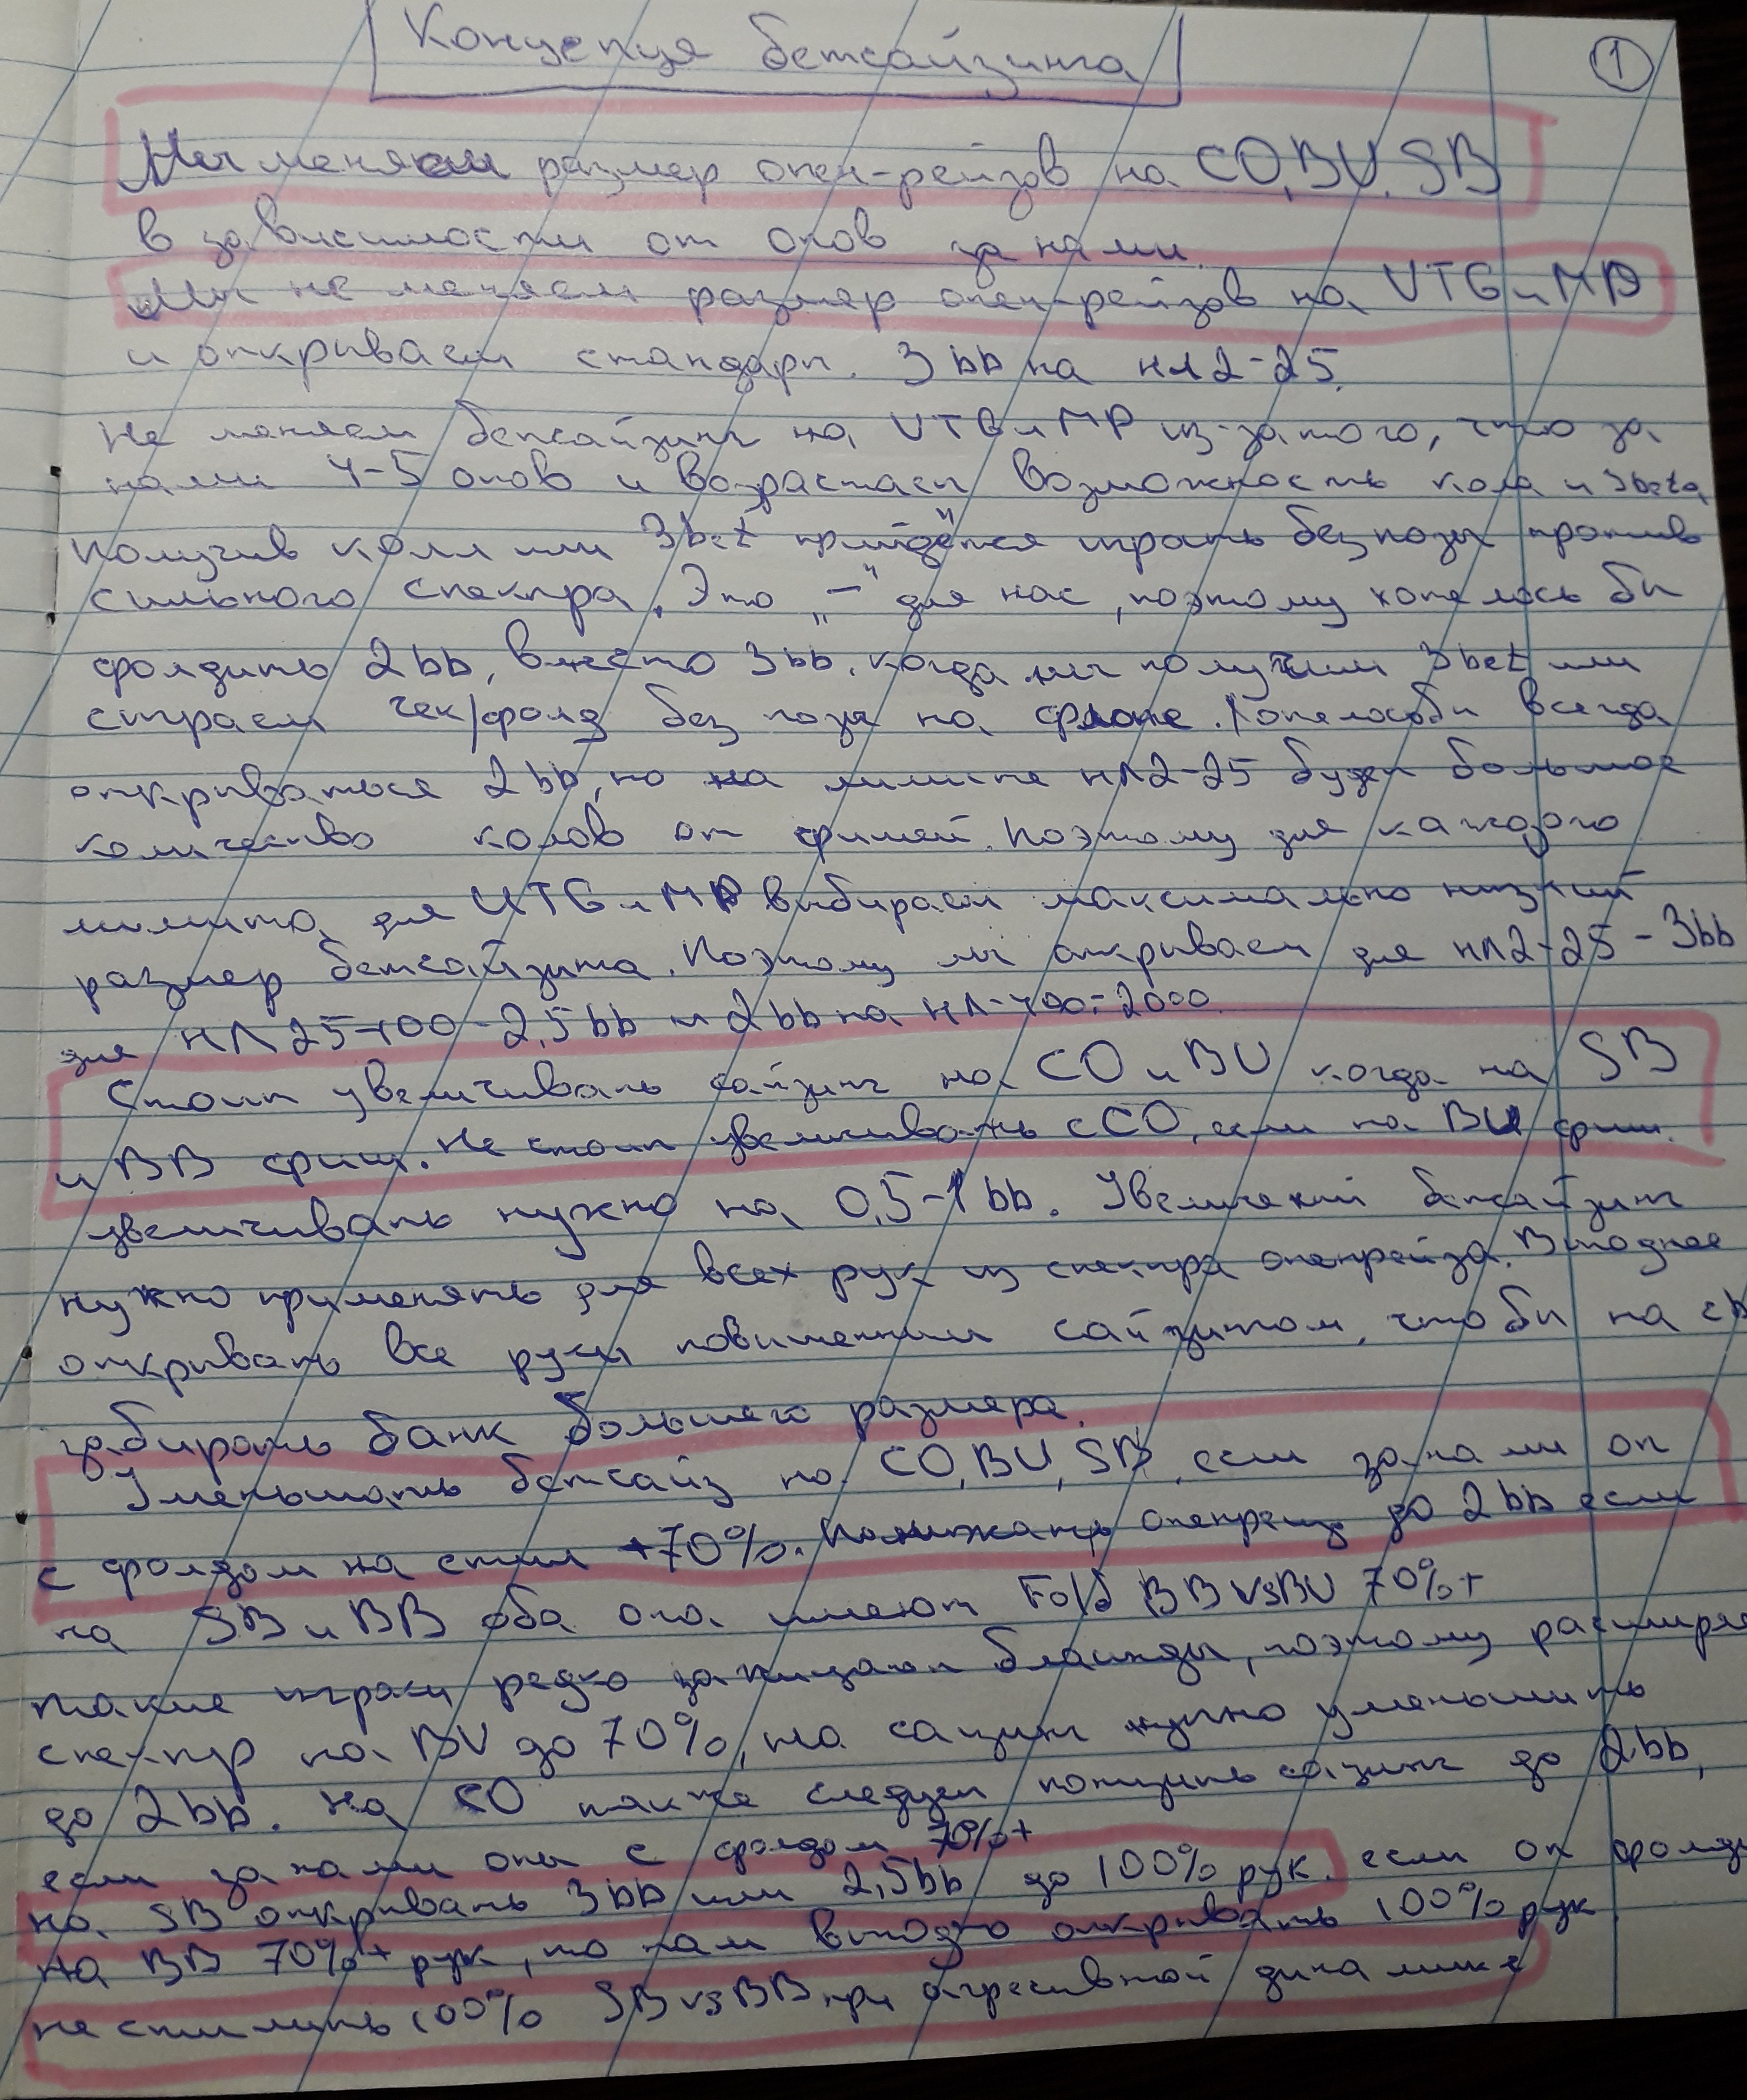 Концепция бетсайзинга
1
Мы меняем размер опен-рейзов на CO, BU, SB
в зависимости от опов за нами.
Мы не меняем размер опен-рейзов на UTG и MP
и открываем стандарт. 3bb на нл2-25.
Не меняем бетсайзинг на UTG и MP из-за того, что за
нами 4-5 опов и возрастает возможность кола и 3beta,
получив колл или 3bet прийдётся играть без позы против
сильного спектра. Это „–" для нас, поэтому хотелось бы
фолдить 2bb, вместо 3bb, когда мы получим 3bet или
сыграем чек/фолд без позы на флопе. Хотелось бы всегда
открываться 2bb, но на лимите нл2-25 будет большое
количество колов от фишей. Поэтому для каждого
лимита для UTG и MP выбираем максимально низкий
размер бетсайзинга. Поэтому мы открываем для нл2-25 - 3bb
для НЛ25-100 - 2,5bb и 2bb на НЛ-400-2000
Стоит увеличивать сайзинг на CO и BU когда на SB
и BB фиш. Не стоит увеличивать с CO, если на BU фиш.
увеличивать нужно на 0,5-1bb. Увеличений бетсайзинг
нужно применять для всех рук из спектра опенрейза. Выгоднее
открывать все руки повышенным сайзингом, чтобы на cb
забирать банк большего размера.
Уменьшать бетсайз на CO, BU, SB, если за нами оп
с фолдом на стил +70%. Понижать опенрейз до 2bb если
на SB и BB оба опа имеют Fold BB vs BU 70%+
такие игроки редко защищают блаинды, поэтому расширяе
спектр на BU до 70%, но сайзинг нужно уменьшить
до 2bb. На CO также следует понизить сайзинг до 2bb,
если за нами опы с фолдом 70%+
на SB открывать 3bb или 2,5bb до 100% рук. если оп фолди
на BB 70%+ рук, то нам выгодно открывать 100% рук
не стилить 100% SB vs BB при агресивной динамике